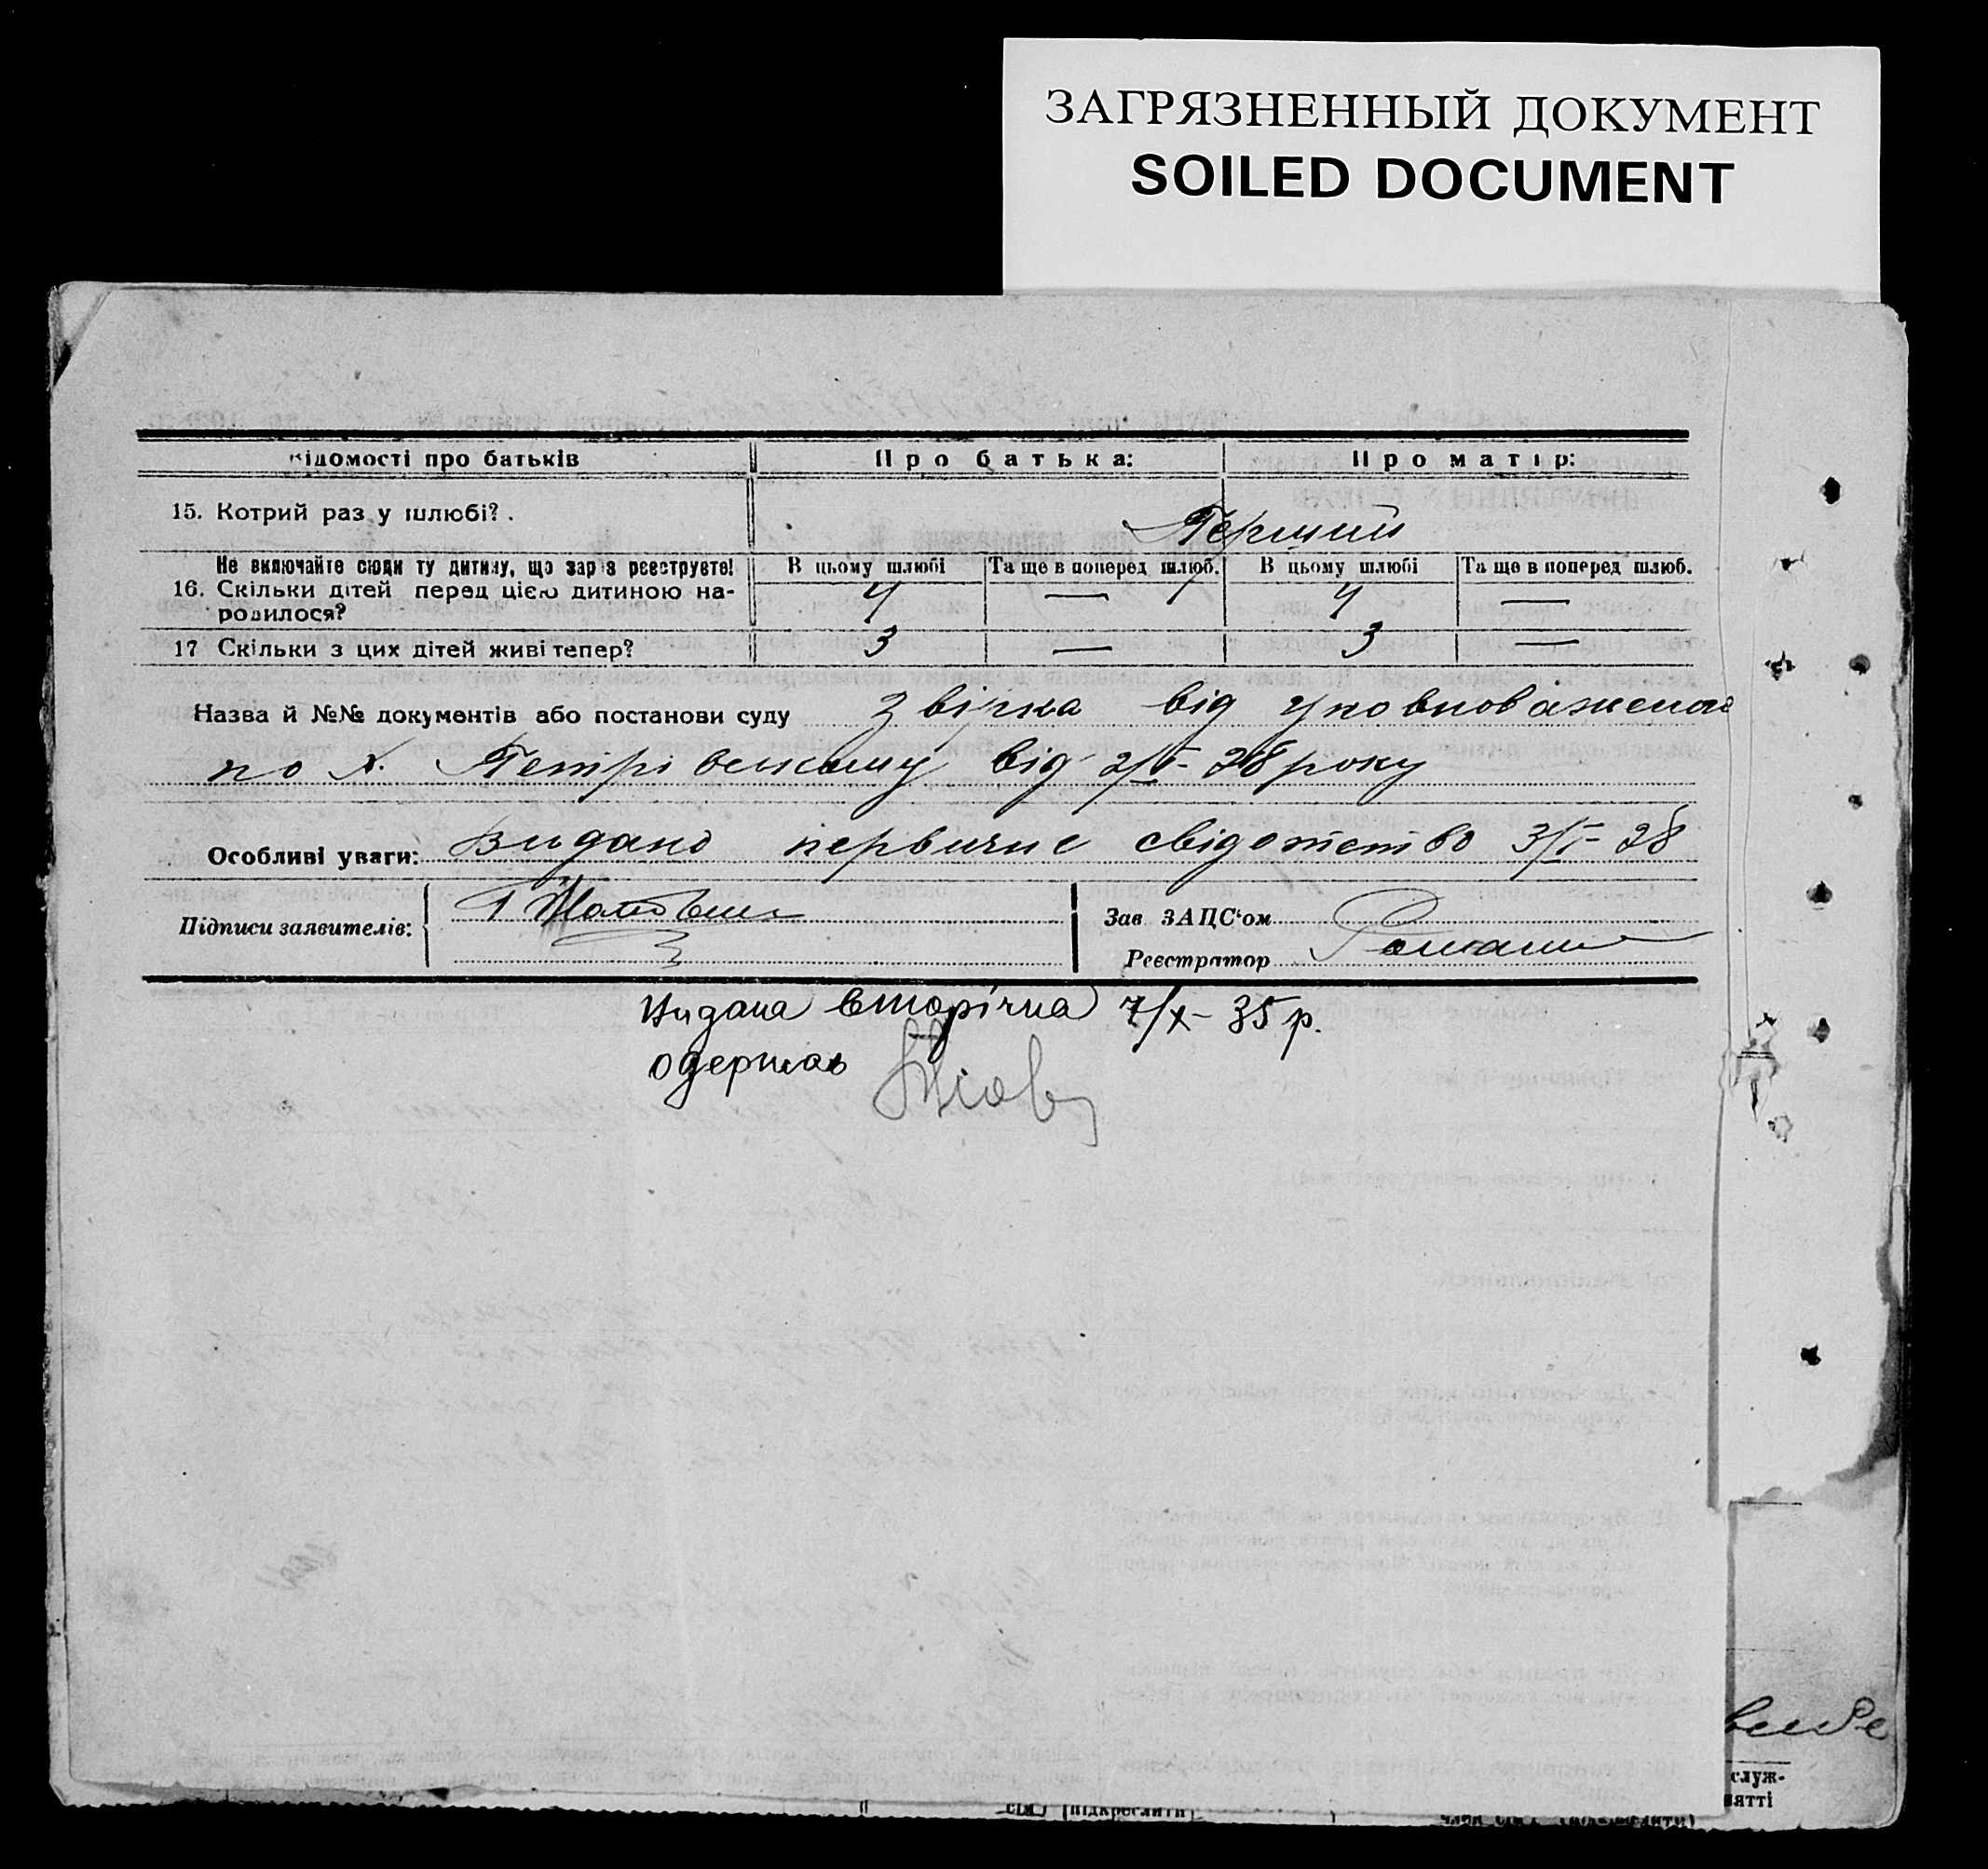 ЗАГРЯЗНЕННЫЙ ДОКУМЕНТ
SOILED DOCUMENT
Відомості про батьків Про батька: Про матір:
15. Котрий раз у шлюбі? . Перший
Не включайте сюди ту дитину, що зараз реєструєте! В цьому шлюбі Та ще в поперед шлюб. В цьому шлюбі Та ще в поперед шлюб.
16. Скільки дітей перед цією дитиною на-
родилося? 4 — 4 —
17 Скільки з цих дітей живі тепер? 3 — 3 —
Назва й №№ документів або постанови суду звірка від уповноваженого
по х. Петрівському від 2/I- 28 року
Особливі уваги: Видано первичне свідотство 3/I- 28
Підписи заявителів: Зав ЗАЦС‘ом
Реєстратор
Видана вторічна 7/X- 35 р.
одержав
служ-
нятті
сія) (підкреслити)